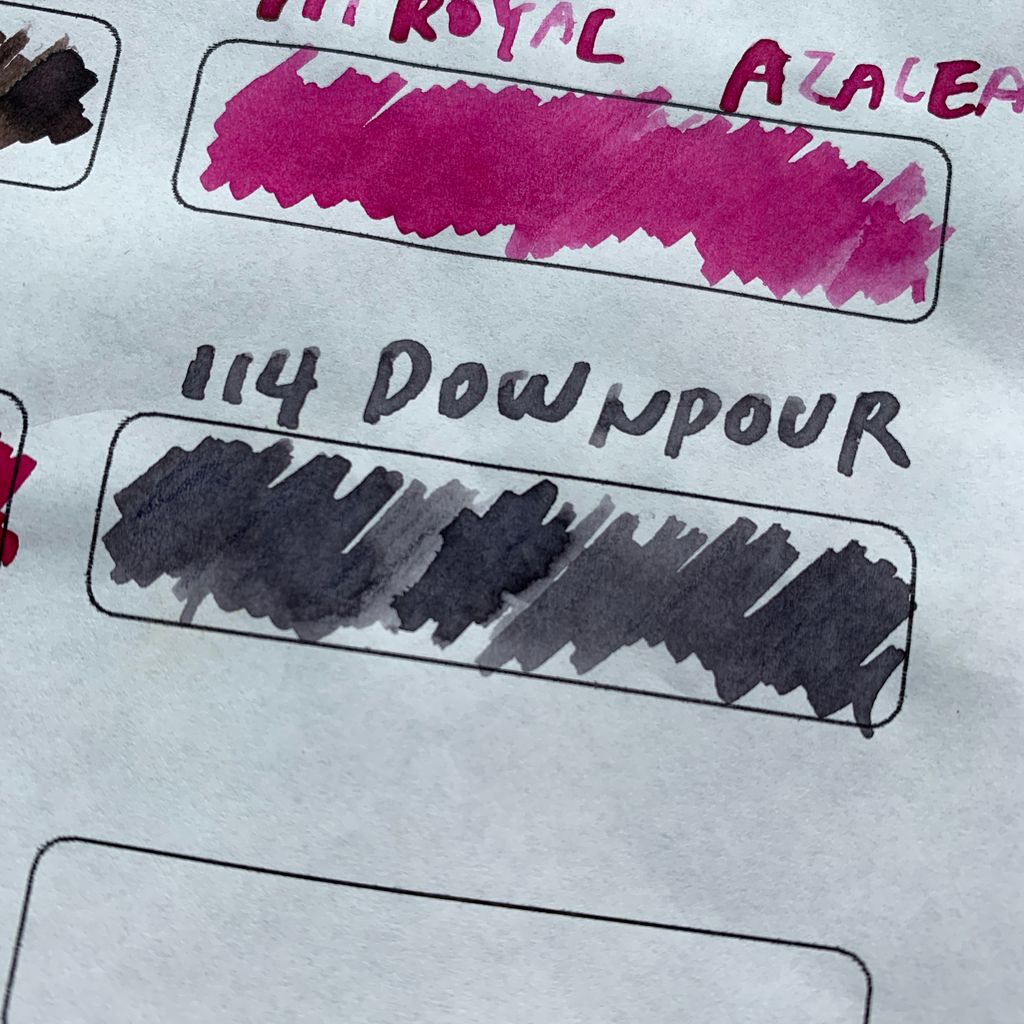 111 ROYAL AZALEA
114 DOWNPOUR